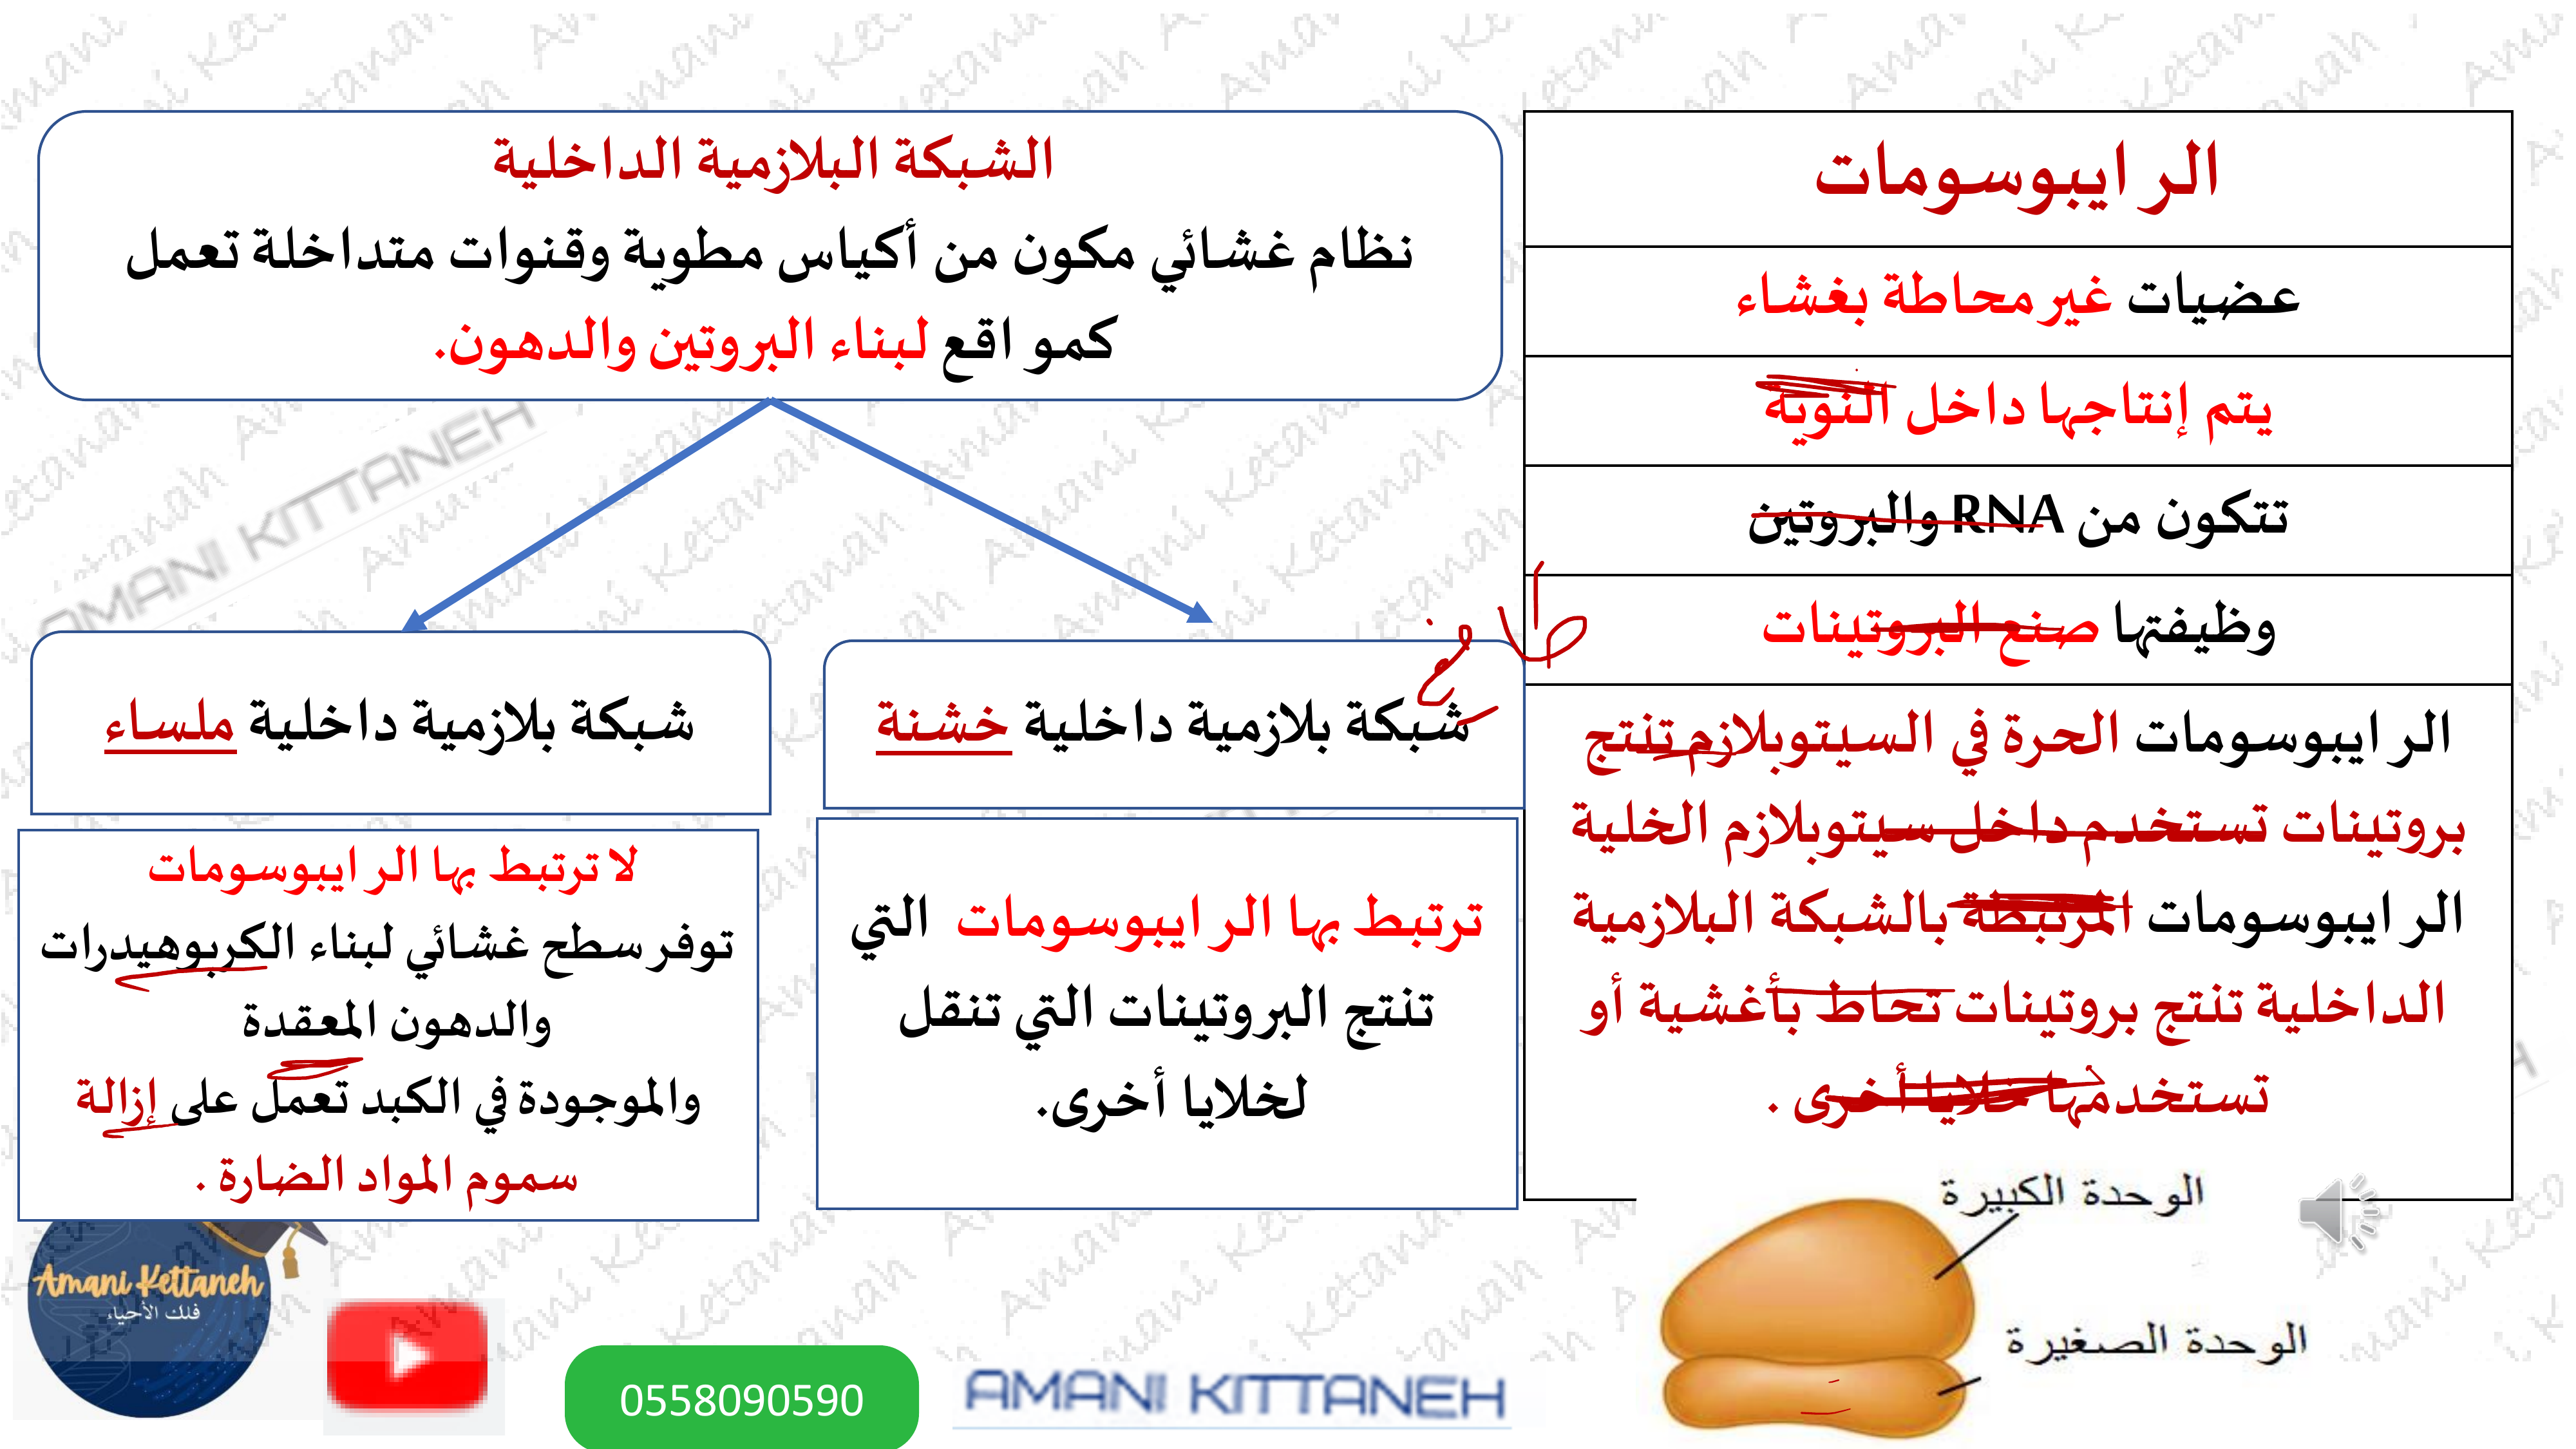 الرايبوسومات
عضيات غير محاطة بغشاء
يتم إنتاجها داخل النوية
تتكون من RNA والبروتين
وظيفتها صنع البروتينات
الرايبوسومات الحرة في السيتوبلازم تنتج
بروتينات تستخدم داخل سيتوبلازم الخلية
الرايبوسومات المرتبطة بالشبكة البلازمية
الداخلية تنتج بروتينات تحاط بأغشية أو
تستخدمها خلايا أخرى .
الوحدة الكبيرة
الوحدة الصغيرة
الشبكة البلازمية الداخلية
نظام غشائي مكون من أكياس مطوية وقنوات متداخلة تعمل
كمواقع لبناء البروتين والدهون.
شبكة بلازمية داخلية خشنة
ترتبط بها الرايبوسومات التي
تنتج البروتينات التي تنقل
لخلايا أخرى.
شبكة بلازمية داخلية ملساء
لا ترتبط بها الرايبوسومات
توفر سطح غشائي لبناء الكربوهيدرات
والدهون المعقدة
والموجودة في الكبد تعمل على إزالة
سموم المواد الضارة .
AMANI KITTANEH
Amani Kettaneh
فلك الأحياء
0558090590
AMANI KITTANEH